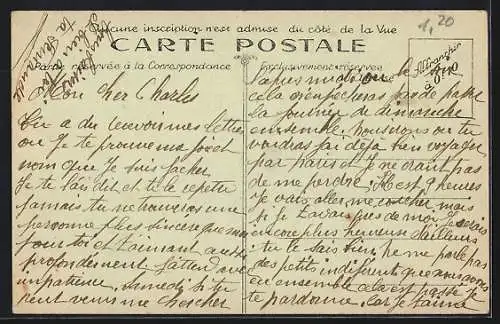 Aucune inscription n'est admise du côté de la Vue
1,20
CARTE POSTALE
Partie réservée à la Correspondance
Exclusivement réservée
Affranchir
à 0f.10
Mon cher Charles
Tu a du recevoir mes lettres
ou Je te prouve ma
nom que Je suis facher
Je te l'ai dit et te le repete
Jamais tu ne trouveras une
personne plus sincère que moi
pour toi et t'aimant aussi
profondement J'attend avec
impatience Samedi si tu
peut venir me chercher
l'apres midi ou le
cela n'empecheras pas de passer
la Journée de dimanche
ensemble nous irons ou tu
voudras J'ai déja bien voyager
par Paris et Je ne craint pas
de me perdre Il est 9 heures
Je vais aller me coucher mais
si Je t'avais pres de moi Je serais
encore plus heureuse d'ailleurs
tu le sais bien ne me parle pas
des petits indifférent que nous avons
eu ensemble cela est passé Je
te pardonne Car Je t'aime